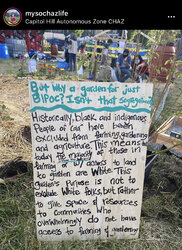 mysochazlife
Capitol Hill Autonomous Zone CHAZ
But why a garden for just
BIPOC? Isn't that segregation?
Historically, black and indigenous
People of Color have been
excluded from farming, gardening
and agriculture. This means
today the majority of those in
farming or w/ access to land
to garden are White. This
garden's purpose is not to
exclude White folks, but rather
to give space & resources
to communities who
overwhelmingly do not have
access to farming & gardening